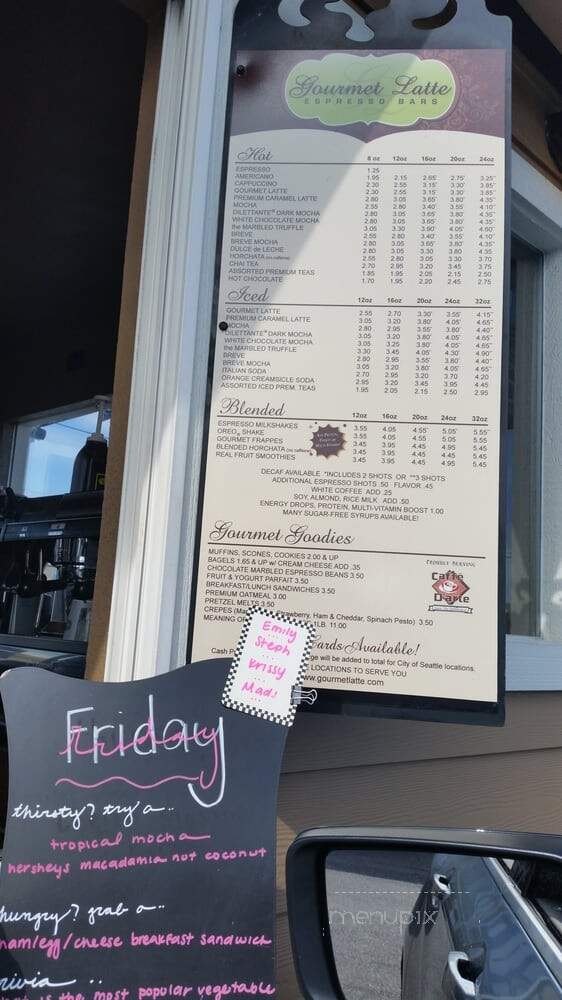 Gourmet Latte
ESPRESSO BARS
Hot 8 oz 12oz 16oz 20oz 24oz
ESPRESSO 1.25
AMERICANO 1.95 2.15 2.65* 2.75* 3.25**
CAPPUCCINO 2.30 2.55 3.15* 3.30* 3.85**
GOURMET LATTE 2.30 2.55 3.15* 3.30* 3.85**
PREMIUM CARAMEL LATTE 2.80 3.05 3.65* 3.80* 4.35**
MOCHA 2.55 2.80 3.40* 3.55* 4.10**
DILETTANTE® DARK MOCHA 2.80 3.05 3.65* 3.80* 4.35**
WHITE CHOCOLATE MOCHA 2.80 3.05 3.65* 3.80* 4.35**
the MARBLED TRUFFLE 3.05 3.30 3.90* 4.05* 4.60**
BREVE 2.55 2.80 3.40* 3.55* 4.10**
BREVE MOCHA 2.80 3.05 3.65* 3.80* 4.35**
DULCE de LECHE 2.80 3.05 3.65* 3.80* 4.35**
HORCHATA (no caffeine) 2.55 2.80 3.05 3.30 3.70
CHAI TEA 2.70 2.95 3.20 3.45 3.75
ASSORTED PREMIUM TEAS 1.85 1.95 2.05 2.15 2.50
HOT CHOCOLATE 1.70 1.95 2.20 2.45 2.75
Iced 12oz 16oz 20oz 24oz 32oz
GOURMET LATTE 2.55 2.70 3.30* 3.55* 4.15**
PREMIUM CARAMEL LATTE 3.05 3.20 3.80* 4.05* 4.65**
MOCHA 2.80 2.95 3.55* 3.80* 4.40**
DILETTANTE® DARK MOCHA 3.05 3.20 3.80* 4.05* 4.65**
WHITE CHOCOLATE MOCHA 3.05 3.25 3.80* 4.05* 4.65**
the MARBLED TRUFFLE 3.30 3.45 4.05* 4.30* 4.90**
BREVE 2.80 2.95 3.55* 3.80* 4.40**
BREVE MOCHA 3.05 3.20 3.80* 4.05* 4.65**
ITALIAN SODA 2.70 2.95 3.20 3.70 4.20
ORANGE CREAMSICLE SODA 2.95 3.20 3.45 3.95 4.45
ASSORTED ICED PREM. TEAS 1.95 2.05 2.15 2.50 2.95
Blended 12oz 16oz 20oz 24oz 32oz
ESPRESSO MILKSHAKES 3.55 4.05 4.55* 5.05* 5.55**
OREO® SHAKE 3.55 4.05 4.55 5.05 5.55
GOURMET FRAPPES 3.45 3.95 4.45 4.95 5.45
BLENDED HORCHATA (no caffeine) 3.45 3.95 4.45 4.95 5.45
REAL FRUIT SMOOTHIES 3.45 3.95 4.45 4.95 5.45
DECAF AVAILABLE. *INCLUDES 2 SHOTS OR **3 SHOTS
ADDITIONAL ESPRESSO SHOTS .50 FLAVOR .45
WHITE COFFEE ADD .25
SOY, ALMOND, RICE MILK ADD .50
ENERGY DROPS, PROTEIN, MULTI-VITAMIN BOOST 1.00
MANY SUGAR-FREE SYRUPS AVAILABLE!
Gourmet Goodies
MUFFINS, SCONES, COOKIES 2.00 & UP
BAGELS 1.65 & UP w/ CREAM CHEESE ADD .35
CHOCOLATE MARBLED ESPRESSO BEANS 3.50
FRUIT & YOGURT PARFAIT 3.50
BREAKFAST/LUNCH SANDWICHES 3.50
PREMIUM OATMEAL 3.00
PRETZEL MELTS 3.50
CREPES Strawberry, Ham & Cheddar, Spinach Pesto) 3.50
MEANING OF 1LB. 11.00
PROUDLY SERVING
Caffe D'arte
Cards Available!
Cash will be added to total for City of Seattle locations.
LOCATIONS TO SERVE YOU
www.gourmetlatte.com
Emily
Steph
Krissy
Madi
Friday
thirsty? try a..
tropical mocha
hersheys macadamia nut coconut
hungry? grab a..
ham/egg/cheese breakfast sandwich
trivia ..
what is the most popular vegetable
menupix